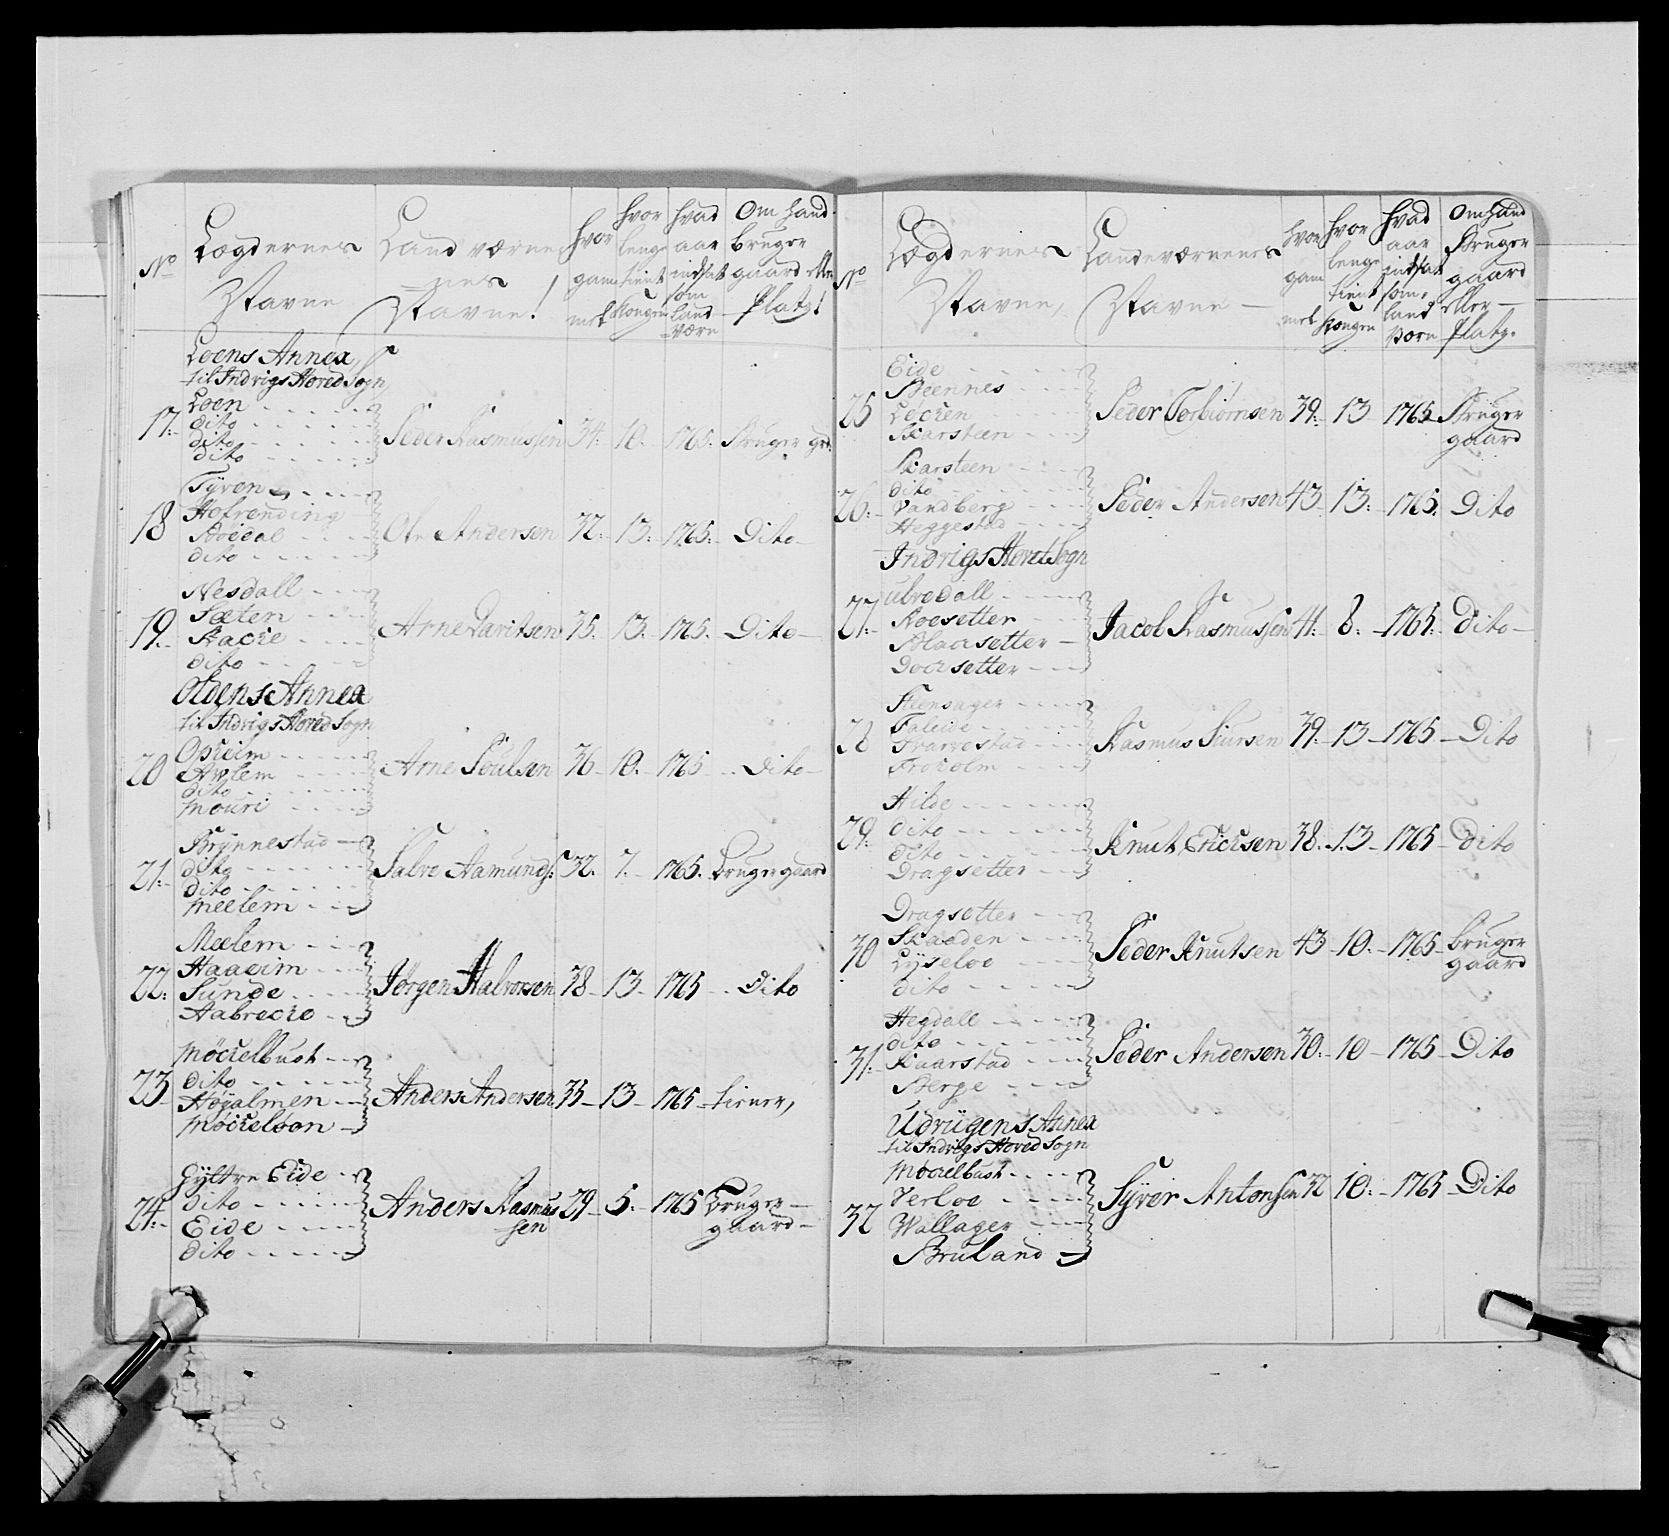 No
Lægdernes
Navne
Land værner
nes
Navne!
hvor
gam
mel
hvor
lenge
tient
Kongen
hvad
aar
indsat
som
land
værn
Om hand
bruger
gaard eller
Platz!
Loens Annex
til Indvigs Hoved Sogn
17:
Loen
dito
dito
dito
Peder Rasmussen 34. 10. 1765. Bruger grd.
18
Tyven
Hofrending
dito
Ole Andersen 32. 13. 1765. Dito
19.
Nesdall
Sæten
dito
Arne Davitsen 35. 13. 1765. Dito
Oldens Annex
til Indvigs Hoved Sogn
20
Opheim
dito
Mouri
Arne Poulsen 36 10. 1765 Dito
21.
Brynnestad
dito
dito
Meelem
Salve Aamunds: 32. 7. 1765. Bruger gaard
22:
Meelem
Haaeim
Sunde
Aabrecke
Jørgen Halvorsen 38 13 1765 Dito
23
Mockelbust
dito
Høyalmen
Mockeloen
Anders Andersen 33 13 1765 tiener,
24:
Gyttre Eide
dito
Eide
dito
Anders Rasmus
sen
29 5. 1765 Bruger
gaard
No
Lægdernes
Navne,
Landeværnernes
Navne
hvor
gam
mel
hvor
lenge
tient
Kongen
hvad
aar
indsat
som
land
værn
Om hand
Bruger
gaard
eller
Platz.
25
Eide
Steennes
Lecken
Skarsteen
Peder Torbiørnsen 39. 13 1765 Bruger
gaard
26:
Skarsteen
dito
Sandberg
Heggestad
Peder Andersen 43 13. 1765. Dito
Indvigs Hoved Sogn
27:
Ulvedall
Roesetter
Docksetter
Jacob Rasmussen 41. 8. 1765. Dito
28
Steensager
Faleide
Tvarvestad
Froholm
Rasmus Siursen 39. 13 1765 Dito
29.
Hilde
dito
dito
Dragsetter
Knut Ericksen 38. 13 1765 Dito
30
Dragsetter
Skaaden
Lyseloe
dito
Peder Knutsen 43 10. 1765 bruger
gaard
31:
Hegdall
dito
Raarstad
Berge
Peder Andersen 30. 10 1765 Dito
Udvigens Annex
til Indvigs Hoved Sogn
32
Mockelbust
Verloe
Wallager
Bruland
Syver Antonsen 32 10. 1765 Dito